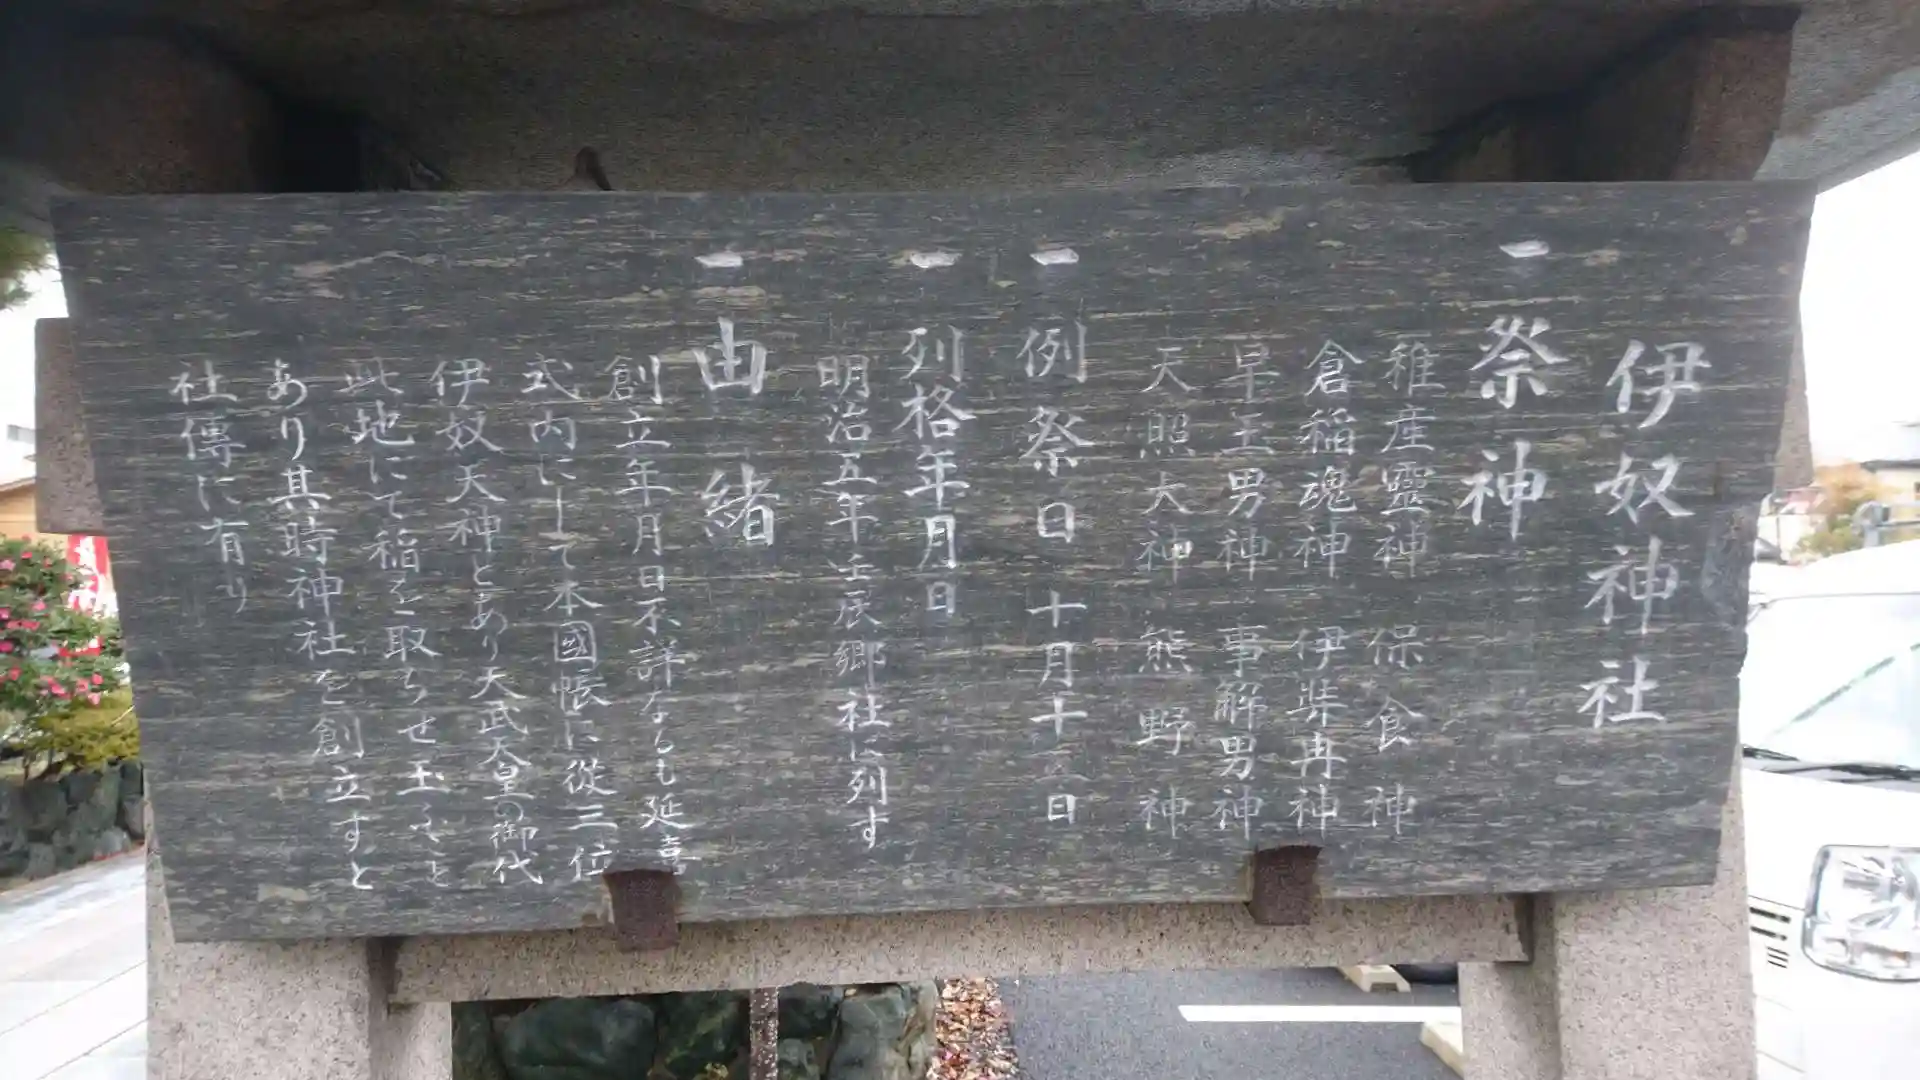 伊奴神社
一 祭神
稚産靈神 保食神
倉稲魂神 伊弉冉神
早玉男神 事解男神
天照大神 熊野神
一 例祭日 十月十二日
一 列格年月日
明治五年壬辰郷社に列す
一 由緒
創立年月日不詳なるも延喜
式内にして本國帳に從三位
伊奴天神とあり天武天皇の御代
此地にて稲を取らせ玉ふこと
あり其時神社を創立すと
社傳に有り